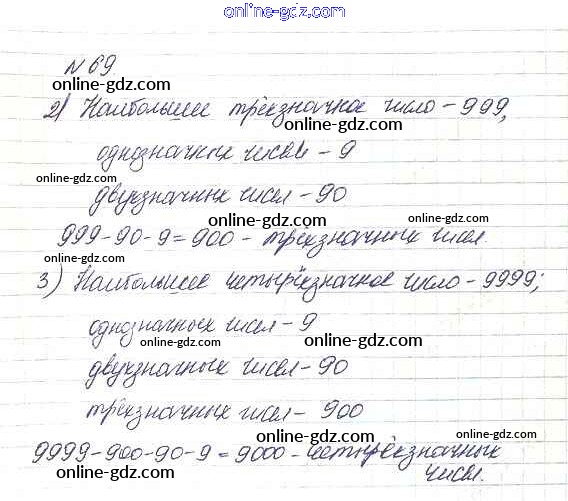 online-gdz.com
N 69
online-gdz.com
2) Наибольшее трёхзначное число - 999,
online-gdz.com
online-gdz.com
однозначных чисел - 9
online-gdz.com
online-gdz.com
двухзначных чисел - 90
online-gdz.com
online-gdz.com
999-90-9=900 - трёхзначных чисел.
online-gdz.com
3) Наибольшее четырёхзначное число - 9999;
online-gdz.com
однозначных чисел - 9
online-gdz.com
online-gdz.com
двухзначных чисел - 90
online-gdz.com
трёхзначных чисел - 900
online-gdz.com
online-gdz.com
9999-900-90-9=9000 - четырёхзначных
чисел.
online-gdz.com
online-gdz.com